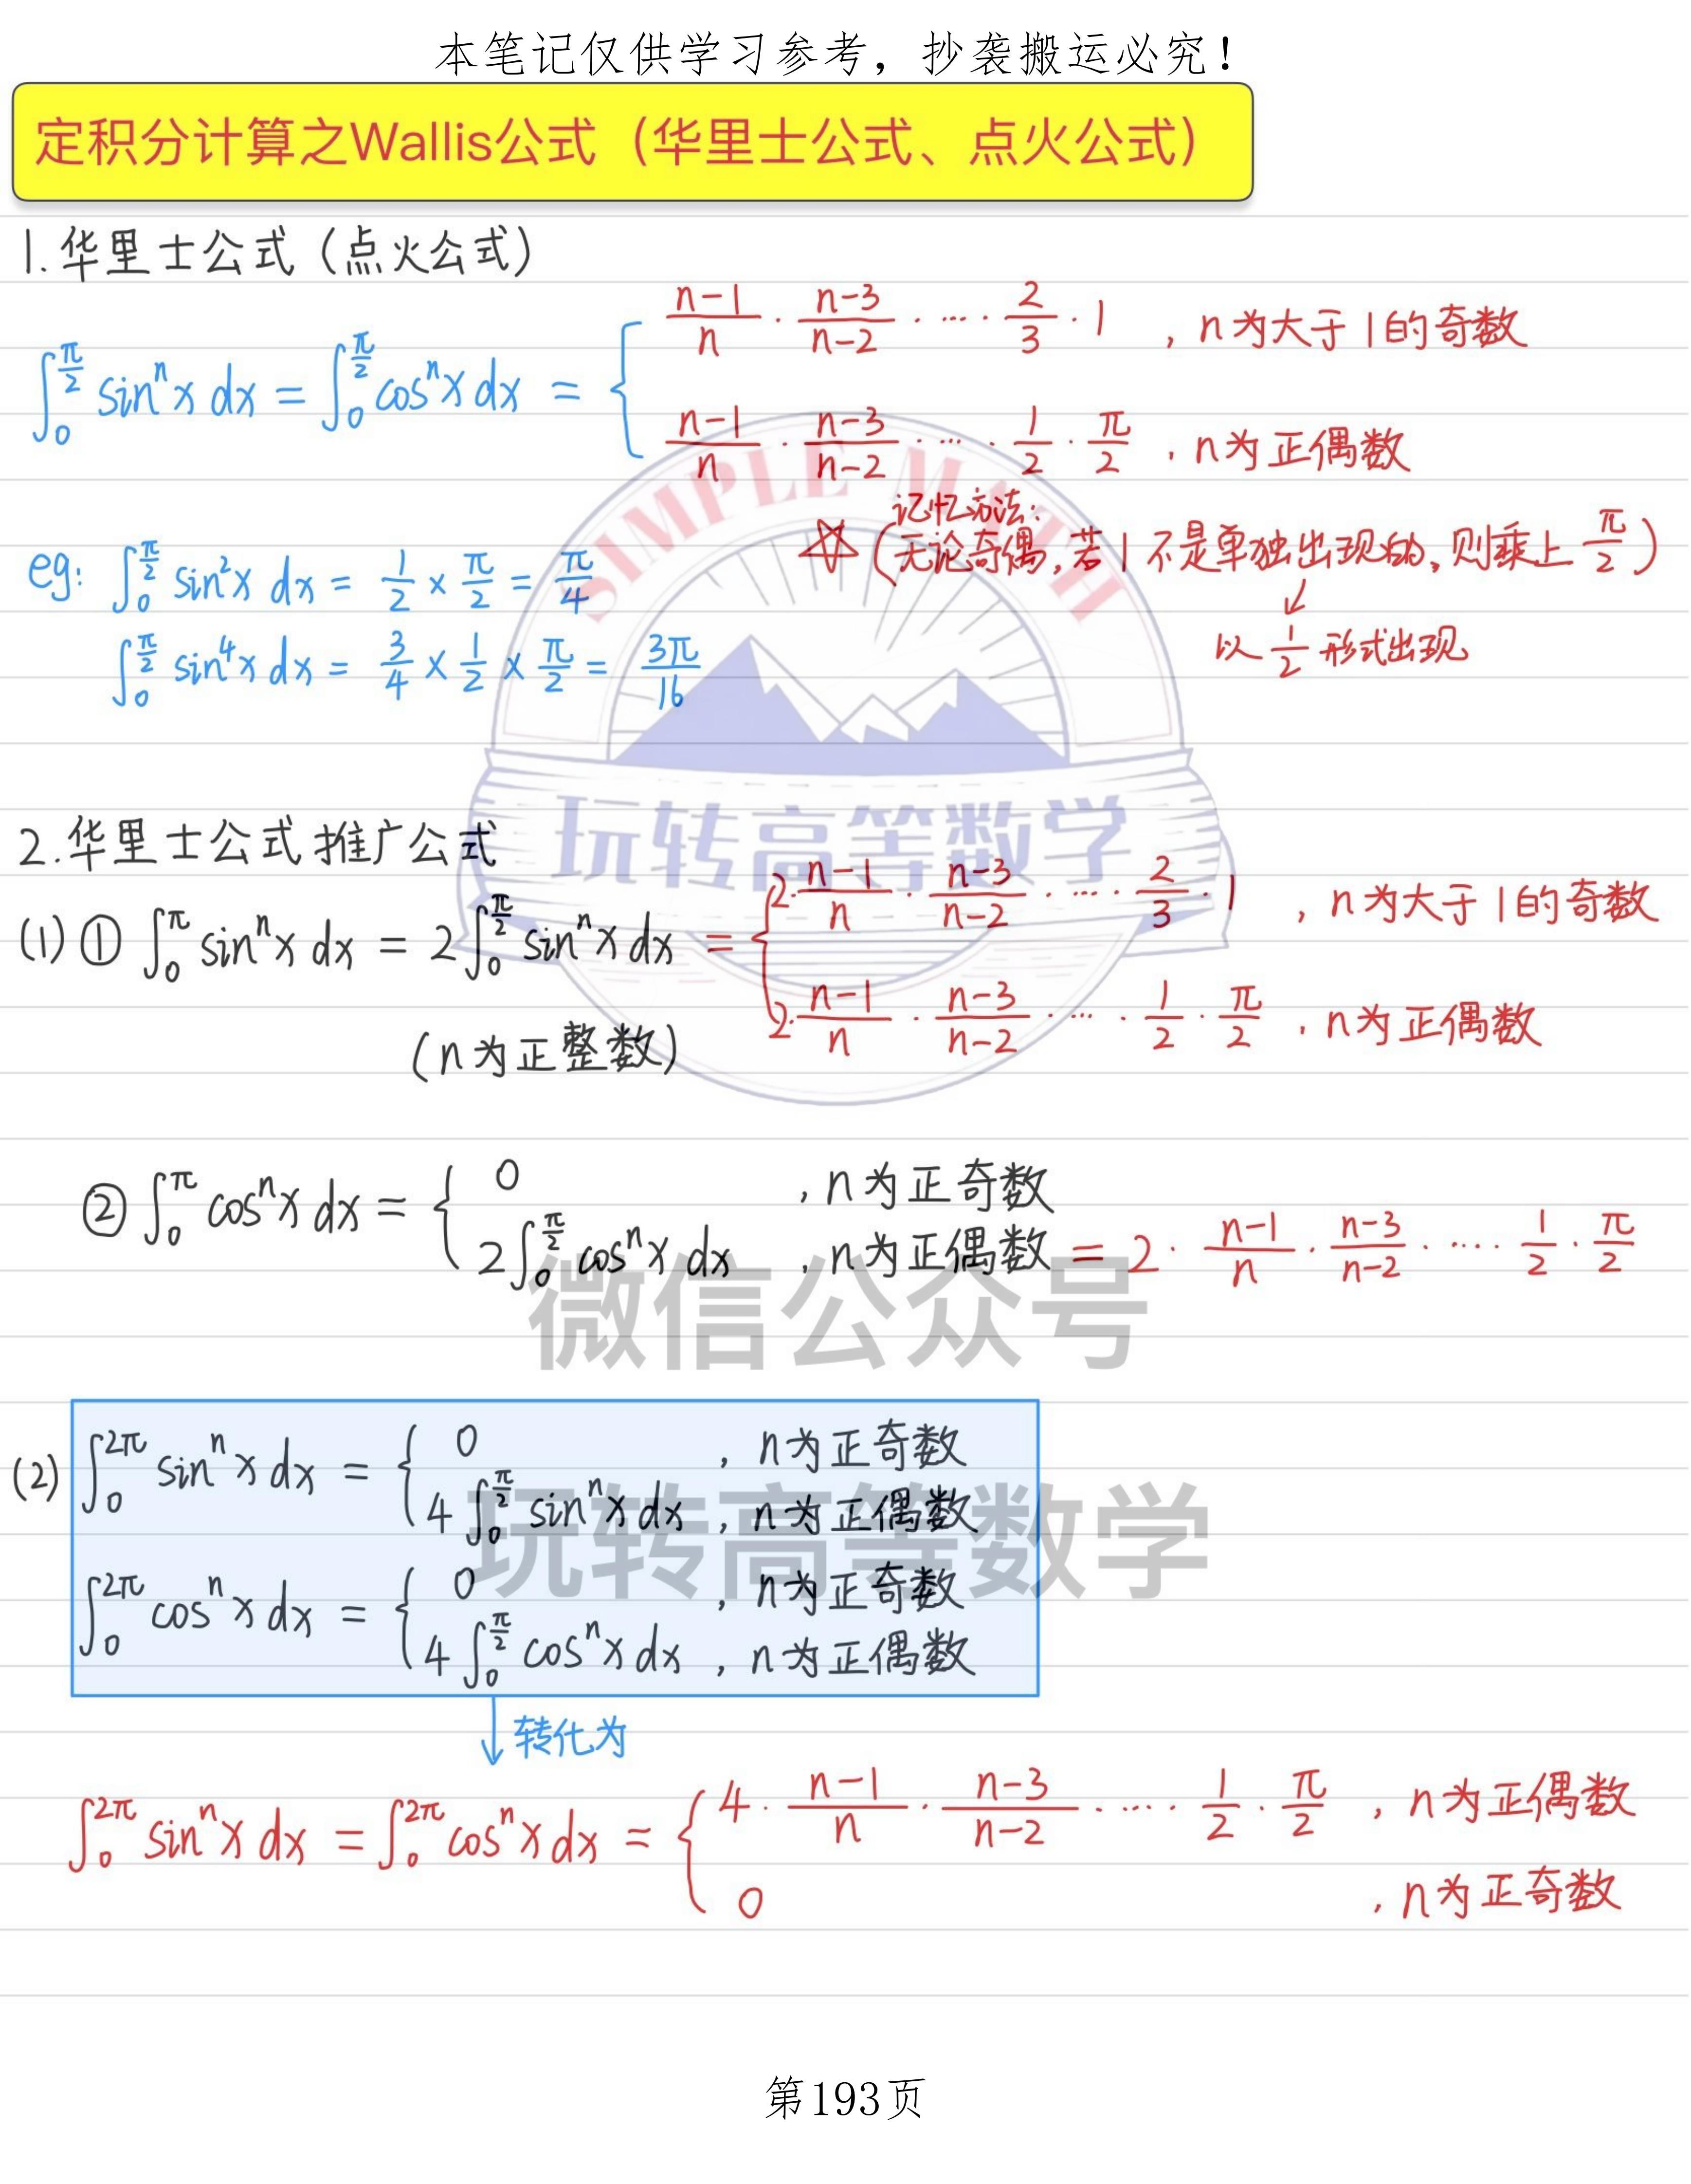 本笔记仅供学习参考，抄袭搬运必究！
定积分计算之Wallis公式（华里士公式、点火公式）
1.华里士公式（点火公式）
∫₀^(π/2) sinⁿx dx = ∫₀^(π/2) cosⁿx dx = {
(n-1)/n · (n-3)/(n-2) · ···· · 2/3 · 1 ，n为大于1的奇数
(n-1)/n · (n-3)/(n-2) · ···· · 1/2 · π/2 ，n为正偶数
记忆方法：
☆（无论奇偶，若1不是单独出现的，则乘上 π/2）
↙
以 1/2 形式出现
eg: ∫₀^(π/2) sin²x dx = 1/2 × π/2 = π/4
∫₀^(π/2) sin⁴x dx = 3/4 × 1/2 × π/2 = 3π/16
2.华里士公式推广公式
(1) ① ∫₀^π sinⁿx dx = 2∫₀^(π/2) sinⁿx dx = {
2·(n-1)/n · (n-3)/(n-2) · ···· · 2/3 · 1 ，n为大于1的奇数
2·(n-1)/n · (n-3)/(n-2) · ···· · 1/2 · π/2 ，n为正偶数
（n为正整数）
② ∫₀^π cosⁿx dx = {
0 ，n为正奇数
2∫₀^(π/2) cosⁿx dx ，n为正偶数 = 2 · (n-1)/n · (n-3)/(n-2) · ···· · 1/2 · π/2
(2) ∫₀^(2π) sinⁿx dx = {
0 ，n为正奇数
4∫₀^(π/2) sinⁿx dx ，n为正偶数
∫₀^(2π) cosⁿx dx = {
0 ，n为正奇数
4∫₀^(π/2) cosⁿx dx ，n为正偶数
↓转化为
∫₀^(2π) sinⁿx dx = ∫₀^(2π) cosⁿx dx = {
4 · (n-1)/n · (n-3)/(n-2) · ···· · 1/2 · π/2 ，n为正偶数
0 ，n为正奇数
SIMPLE MATH
玩转高等数学
微信公众号
玩转高等数学
第193页